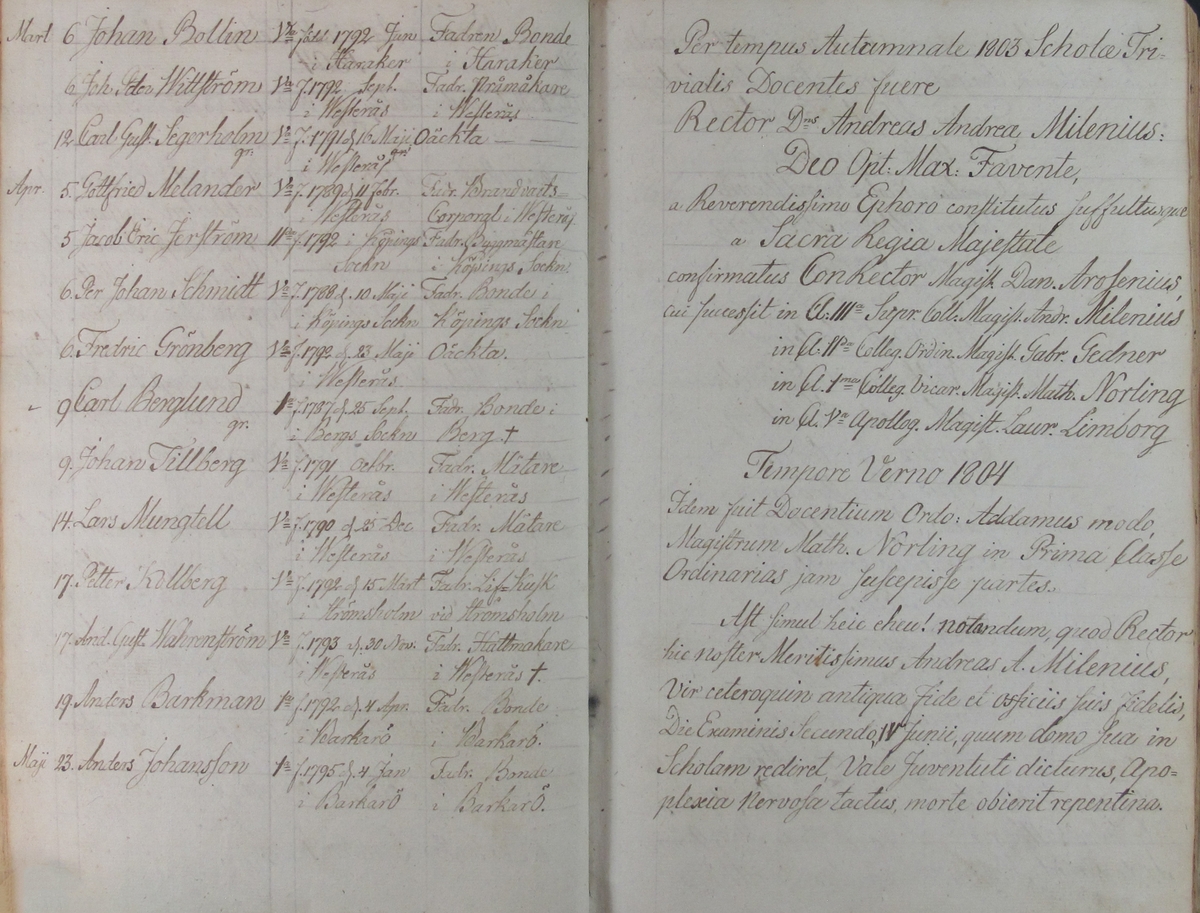 Mart 6 Johan Bollin Va född 1792 Jun Fadren Bonde
i Haraker i Haraker
6 Joh. Wittström Va f. 1792 Sept. Fadr.
i Westerås i Westerås
12 Carl Gust. Segerholm Va f. 1791 d. 16 Maji Oäckta
gr. i Westerås gr.
Apr. 5. Gottfried Melander Va f. 1789 d. 11 Febr. Fadr. Brandvacts-
i Westerås Corporal i Westerås
5 Jacob Eric Jerström IIa f. 1792 i Köpings Fadr. Byggmästare
Sockn i Köpings Sockn
6. Per Johan Schmidt Va f. 1788 d. 10 Maji Fadr. Bonde i
i Köpings Sockn Köpings Sockn
6. Fredric Grönberg Va f. 1792 d. 23 Maji Oäckta.
i Westerås
9 Carl Berglund Ia f. 1787 d. 25 Sept. Fadr. Bonde i
gr. i Bergs Sockn Berg †
9. Johan Tillberg Va f. 1791 Octbr. Fadr. Mätare
i Westerås i Westerås
14. Lars Mungtell Va f. 1790 d. 25 Dec Fadr. Mätare
i Westerås i Westerås
17. Petter Kollberg Va f. 1792 d. 15 Mart Fadr. Lif-Kusk
i Strömsholm vid Strömsholm
17. And. Gust. Wahrenström Va f. 1793 d. 30 Nov. Fadr. Hattmakare
i Westerås i Westerås †.
19. Anders Barkman Ia f. 1792 d. 4 Apr. Fadr. Bonde
i Barkarö i Barkarö.
Maji 23. Anders Johansson Ia f. 1795 d. 4 Jan Fadr. Bonde
i Barkarö i Barkarö.
Per tempus Autumnale 1803 Scholæ Tri-
vialis Docentes fuere
Rector Dns Andreas Andreæ Milenius:
Deo Opt: Max: Favente,
a Reverendissimo Ephoro constitutus suffultusque
a Sacra Regia Majestate
confirmatus ConRector Magist. Dan. Arosenius,
cui successit in Cl. IIIa Supr. Coll. Magist. Andr. Milenius
in Cl. IIda Colleg. Ordin. Magist. Gabr. Gedner
in Cl. Ima Colleg. Vicar. Magist. Math. Norling
in Cl. Va Apolog. Magist. Laur. Limborg
Tempore Verno 1804
Idem fuit Docentium Ordo: Addamus modo,
Magistrum Math. Norling in Prima Classe
Ordinarias jam suscepisse partes.
Ast simul heic eheu! notandum, quod Rector
hic noster Meritissimus Andreas A. Milenius,
Vir ceteroquin antiqua fide et officiis suis fidelis,
Die Examinis Secundo, IV Junii, quum domo sua in
Scholam rediret, Vale Juventuti dicturus, Apo-
plexia Nervosa tactus, morte obierit repentina.